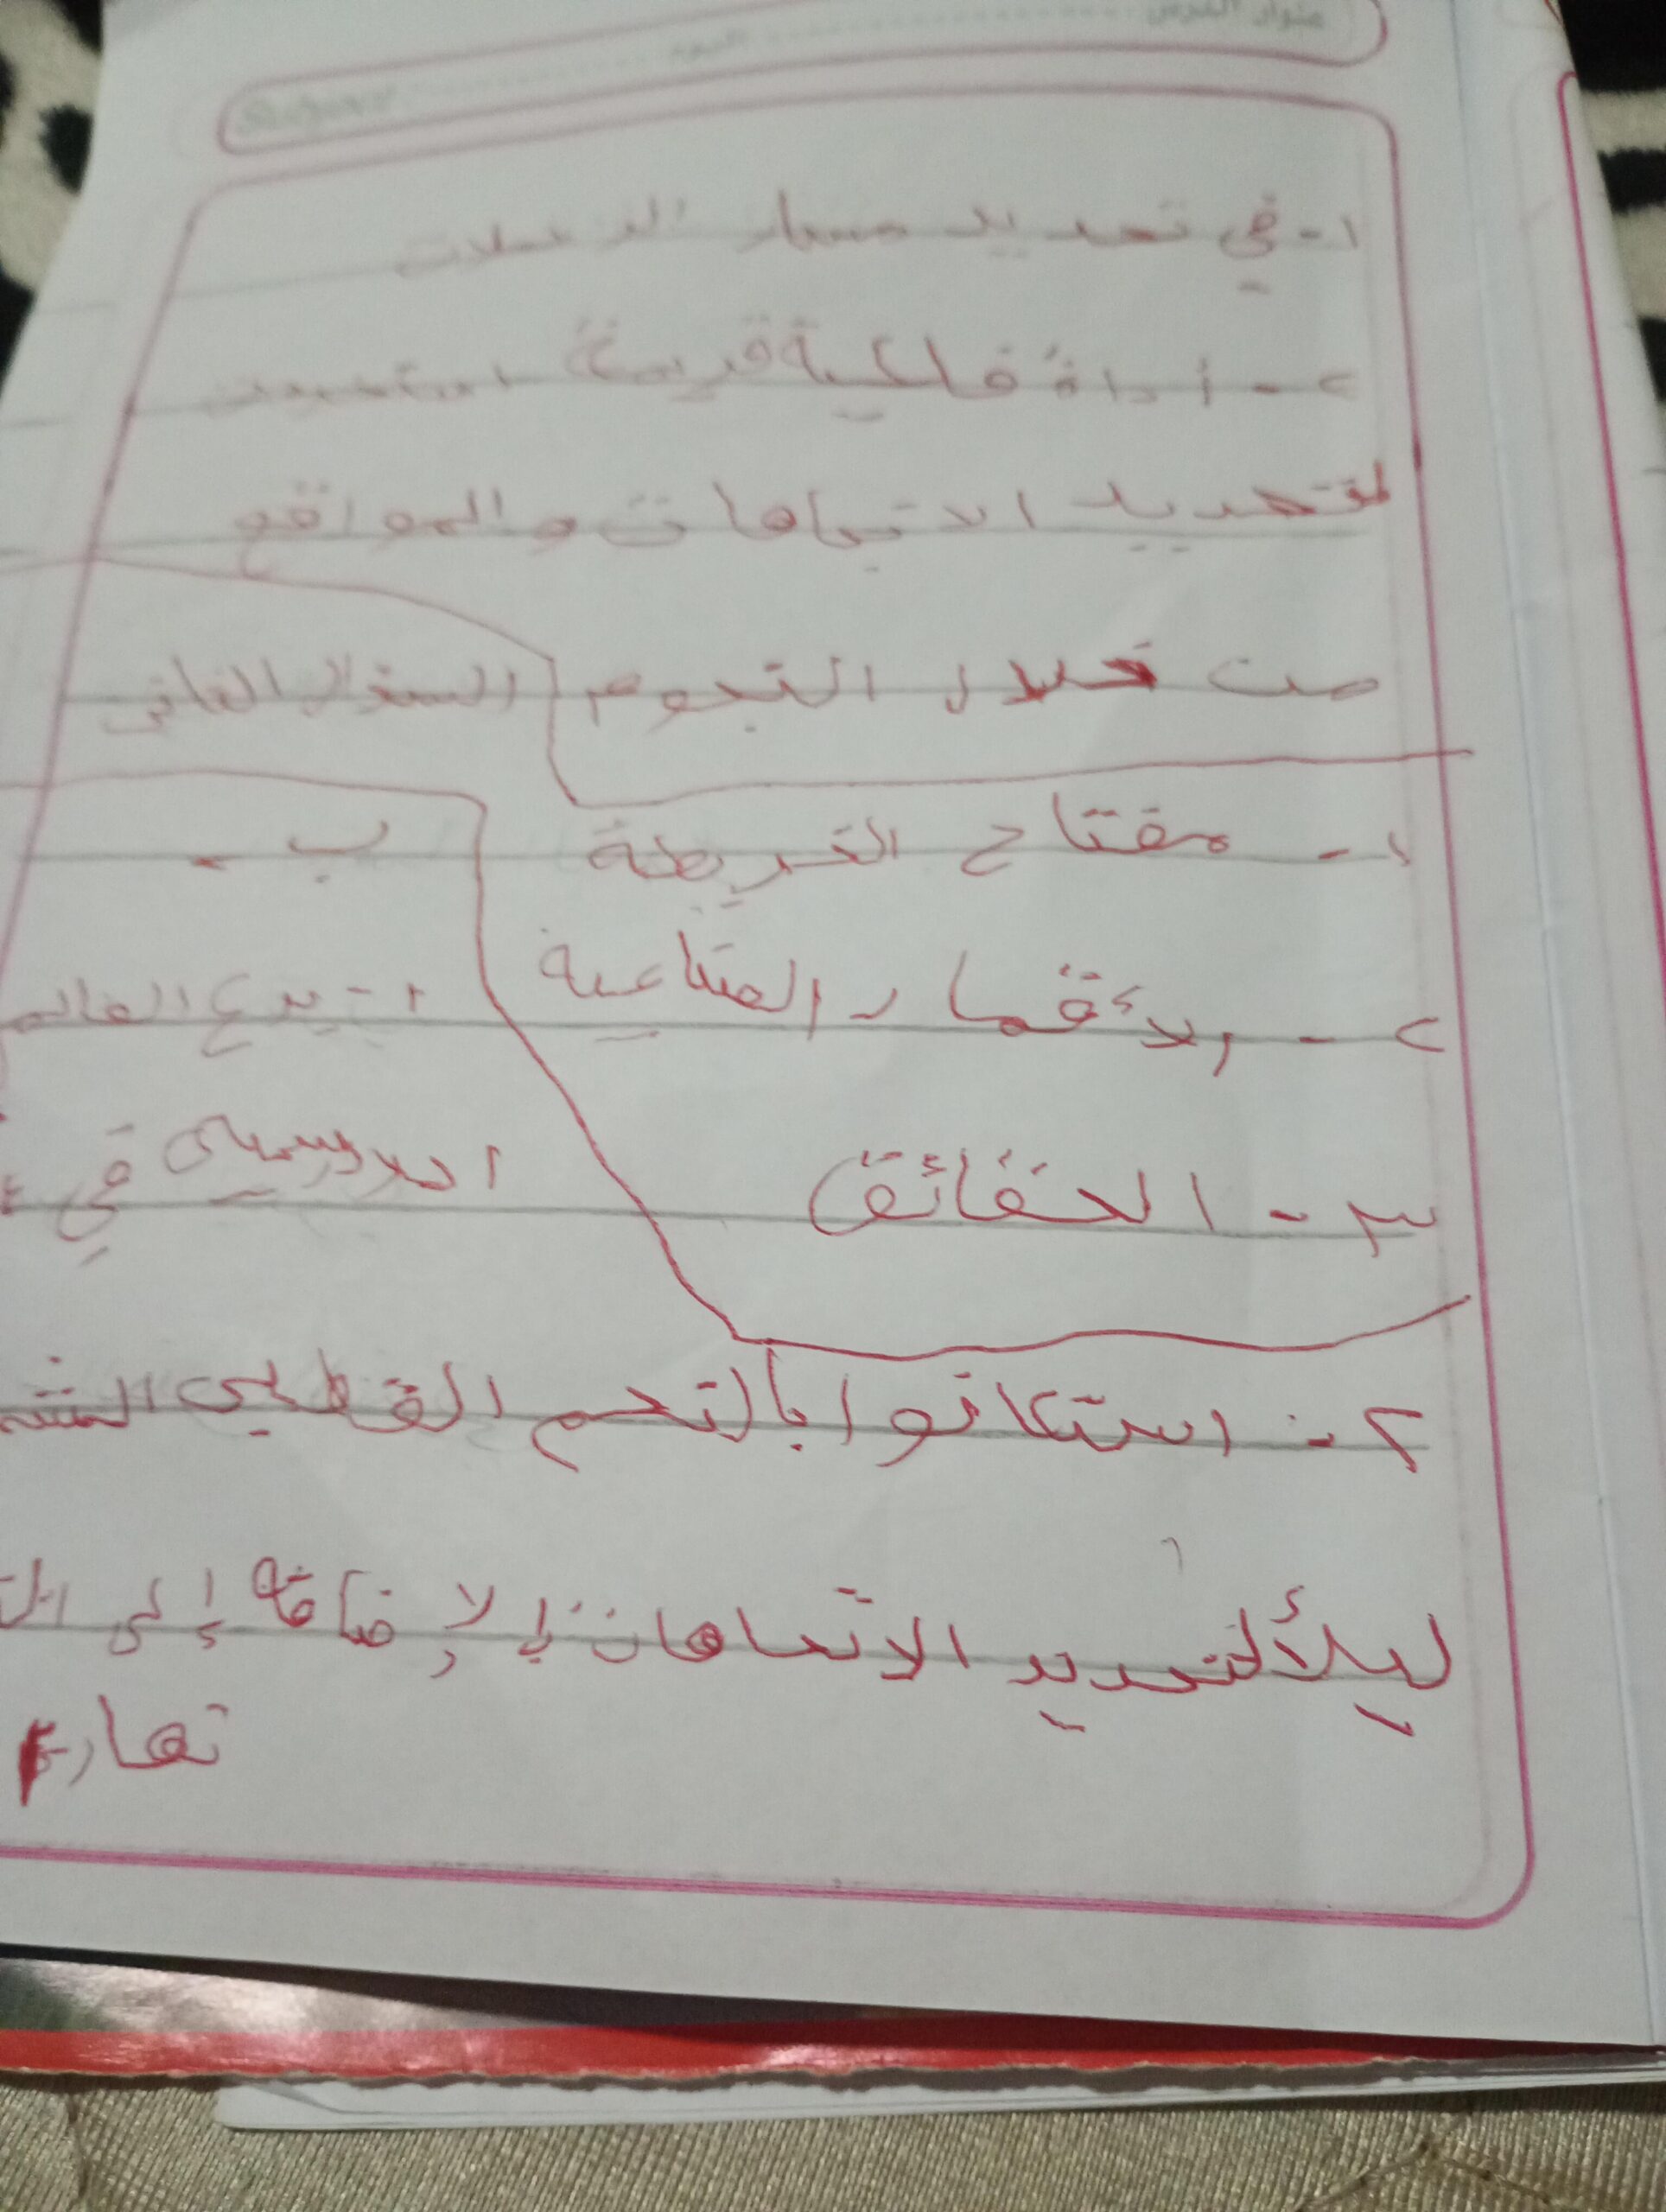 عنوان الدرس
اليوم
Subject
١- في تحديد مسار الرحلات
٢- أداة فلكية قديمة استخدمت
لتحديد الاتجاهات والمواقع
من خلال النجوم
السؤال الثاني
١- مفتاح الخريطة
٢- الأقمار الصناعية
٣- الحقائق
ب-
١- برع العالم
الادريسي في
٢- استعانوا بالنجم القطبي
ليلاً لتحديد الاتجاهات بالإضافة إلى